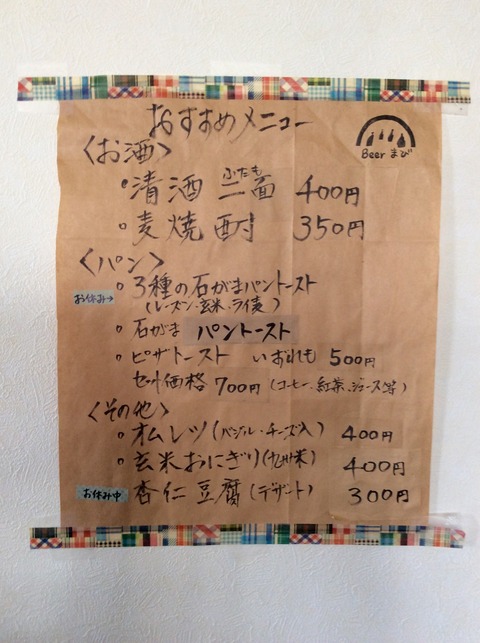 おすすめメニュー
Beer まび
〈お酒〉
ふたも
・清酒 二面 400円
・麦焼酎 350円
〈パン〉
・3種の石がまパントースト
お休み→
(レーズン、玄米、ライ麦)
・石がま パントースト
・ピザトースト いずれも 500円
セット価格 700円(コーヒー、紅茶、ジュース等)
〈その他〉
・オムレツ(バジル・チーズ入) 400円
・玄米おにぎり(九州米) 400円
お休み中 杏仁豆腐(デザート) 300円